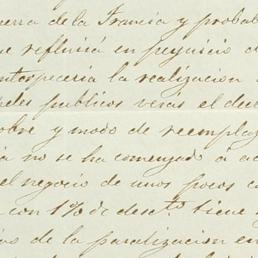 erra de la Francia y probabl
e refluirá en perjuicio d
ntorpeceria la realizacion
eles publicos veras el decr
obre y modo de reemplaz
a no se ha comenzado á ac
el negocio de unos pocos c
con 1% de descto tiene
os de la paralizacion en